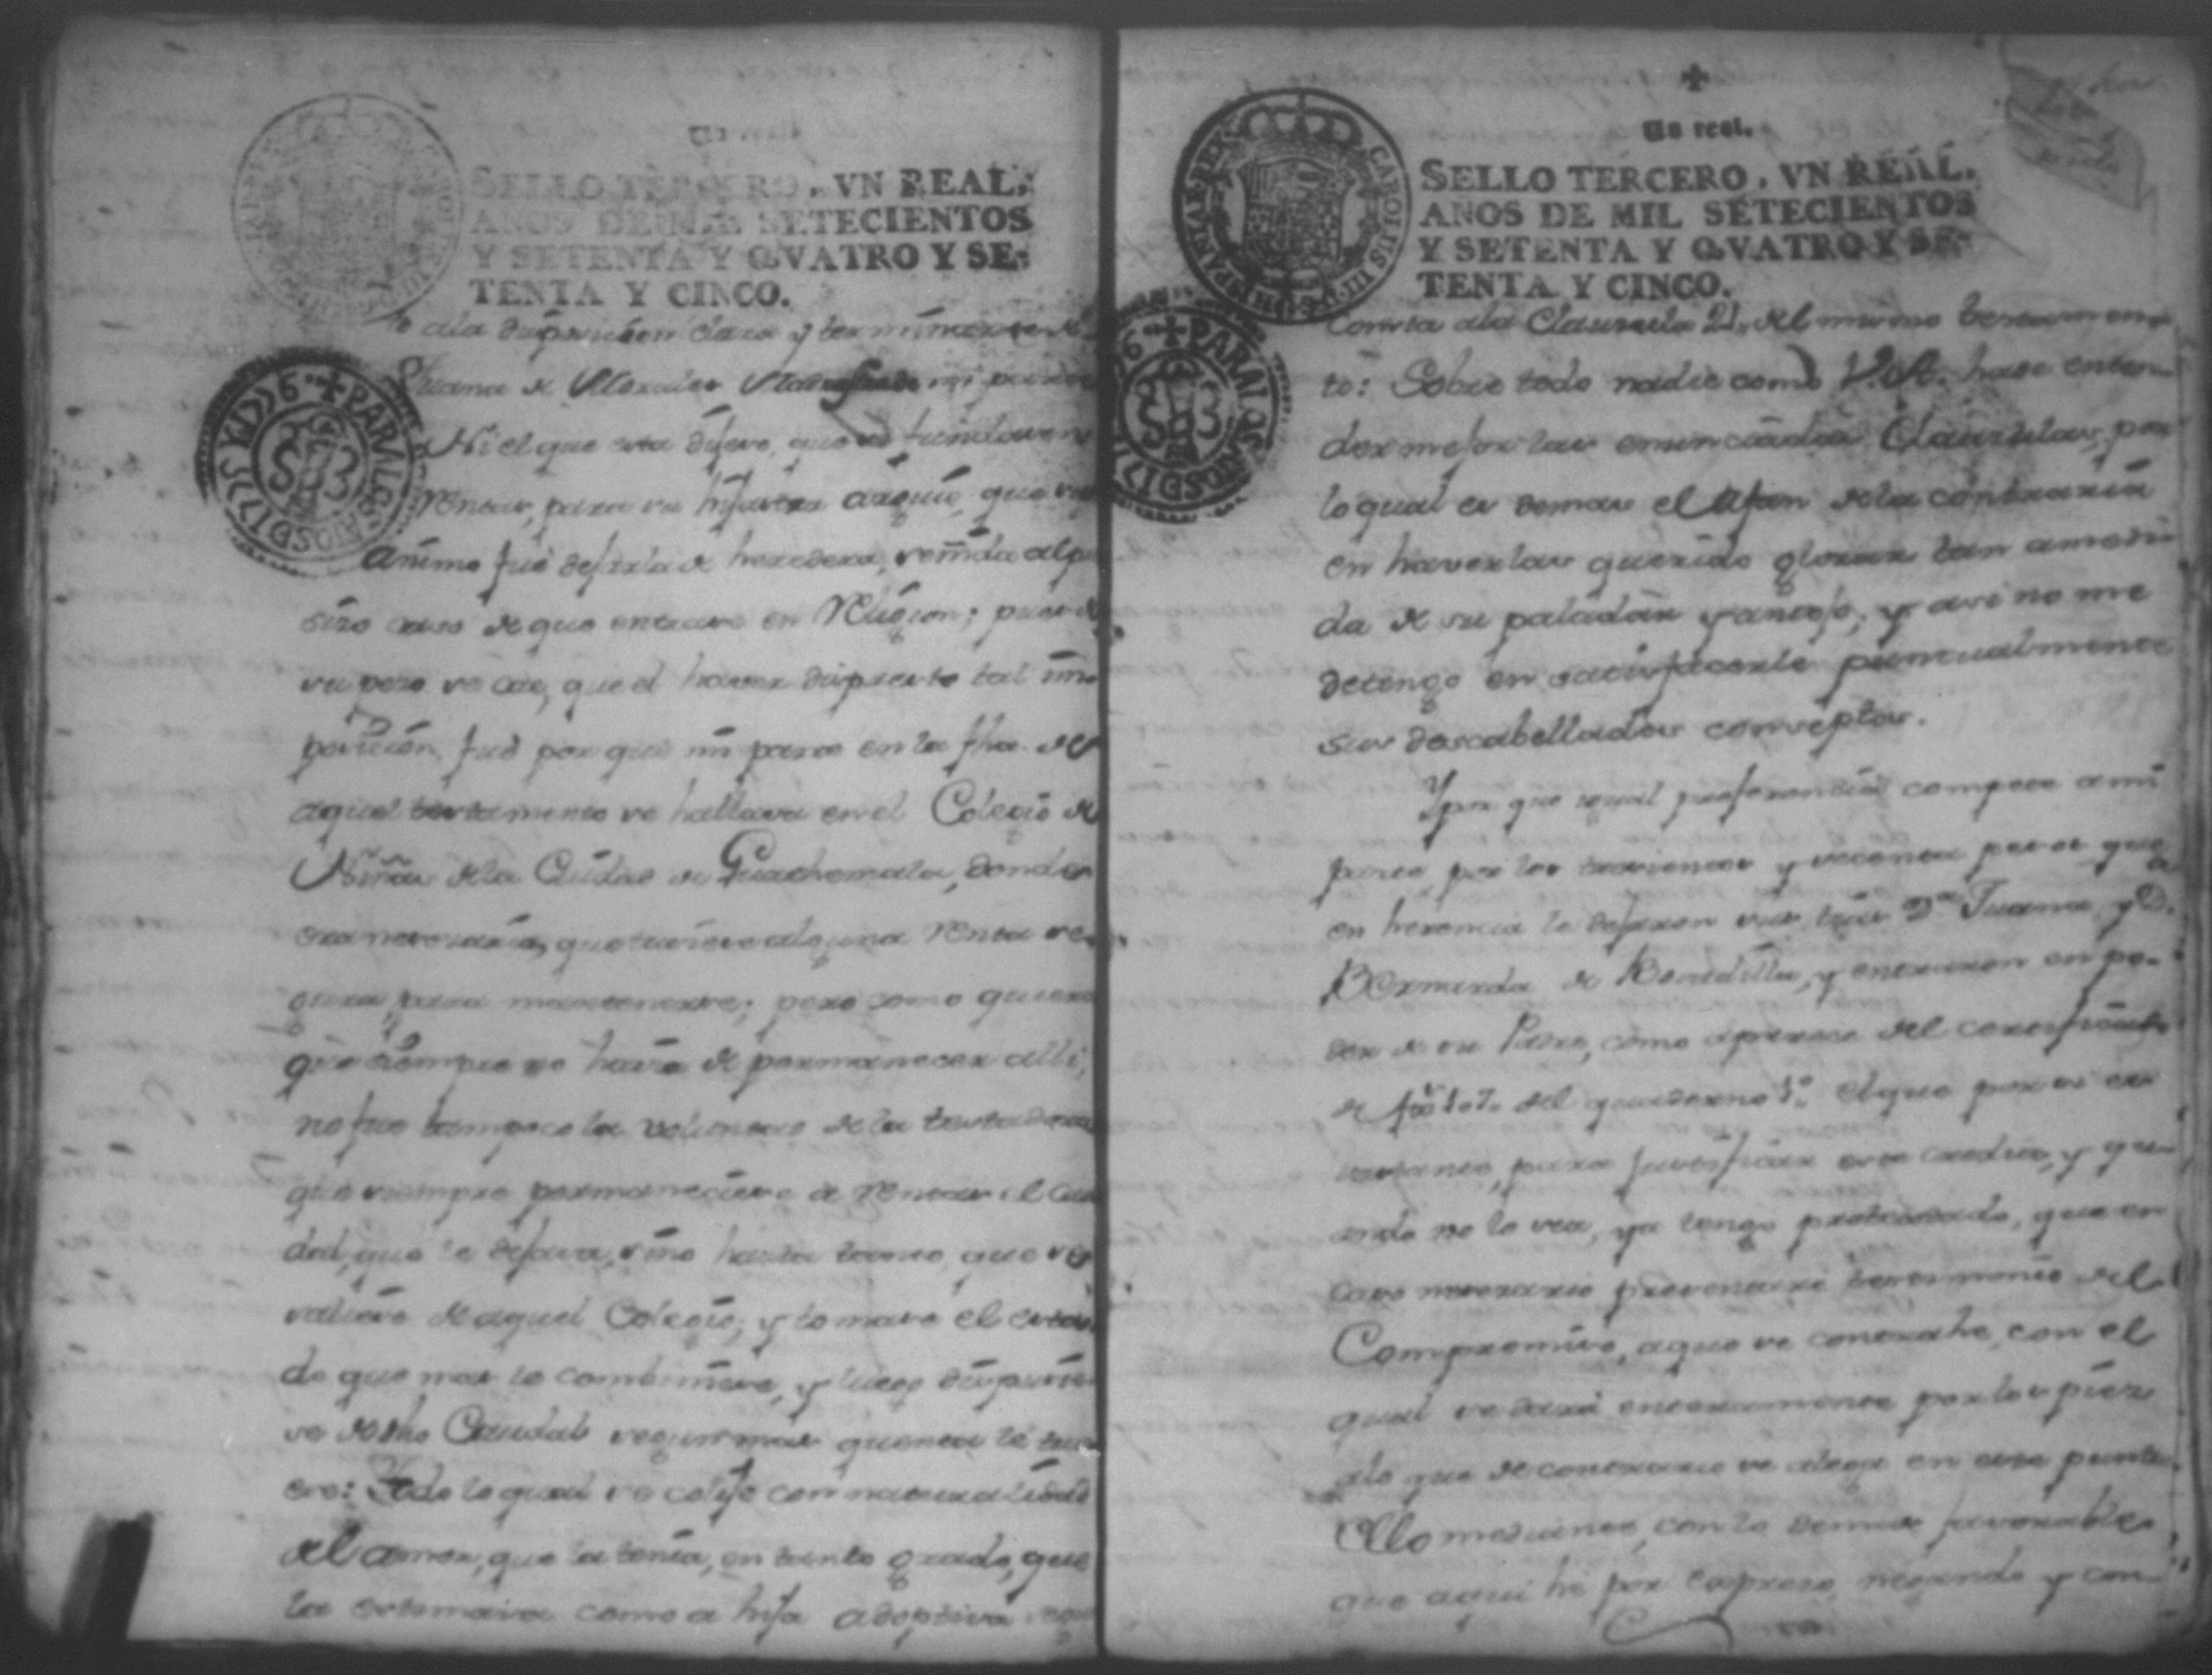 SELLO TERCERO, VN REAL,
AÑOS DE MIL SETECIENTOS
Y SETENTA Y QVATRO Y SE-
TENTA Y CINCO.
a la disposicion clara y terminante de
Juana de Morales mi parte
Ni el que esta dijere, que se fundasen
rentas, para su hija
animo fué dejarla de heredera, al
caso de que entrase en Religion; pues de
su peso se cae, que el haver dispuesto tal im
posicion, fué por que mi parte en la fha. de
aquel testamento se hallava en el Colegio de
Niñas de la Ciudad de Guathemala, donde
era necesario, que tuviese alguna renta se-
gura, para mantenerse; pero como quiera
que siempre no havia de permanecer alli,
no fue tampoco la voluntad de la testadora
que siempre permaneciese a rentas el Cau
dal, que le dejava, sino hasta tanto, que se
saliese de aquel Colegio, y tomase el esta
do que mas le combiniese, y luego dispusie
se de dho Caudal segun mas quenta le tuvi
ere: Todo lo qual se colije con naturalidad
del amor, que la tenia, en tanto grado, que
la estimava como a hija adoptiva segun
PARA LOS AÑOS DI 1775 Y 1776
✝
Un real.
SELLO TERCERO, VN REAL.
AÑOS DE MIL SETECIENTOS
Y SETENTA Y QVATRO Y SE-
TENTA Y CINCO.
CAROLUS III D G HISPANIAR REX
PARA LOS AÑOS DI 177
Consta a la Clausula 21. del mismo testamen-
to: Sobre todo nadie como V.A. hase enten-
der mejor las enunciadas Clausulas, por
lo qual es demas el afan de la contraria
en haverlas querido glosar tan a medi-
da de su paladar y antojo; y asi no me
detengo en satisfacerle puntualmente
sus descabellados conceptos.
Y por que igual preferencia compete a mi
parte por los trescientos y sesenta pesos que
en herencia le dejaron sus tias Da. Juana, y Da.
Bermarda de Bobadilla, y entraron en po-
der de su Padre, como aparece del certificado
de fox del quaderno 1o. el que por si es
bastante, para justificar este credito, y qu-
ando no lo sea, ya tengo protestado, que en
caso necesario presentaré testimonio del
Compromiso, a que se contrahe, con el
qual se dará enteramente por los pies
a lo que de contrario se alega en este punto.
Ello mediante, con lo demas favorable
que aqui hé por expreso, negando y con-